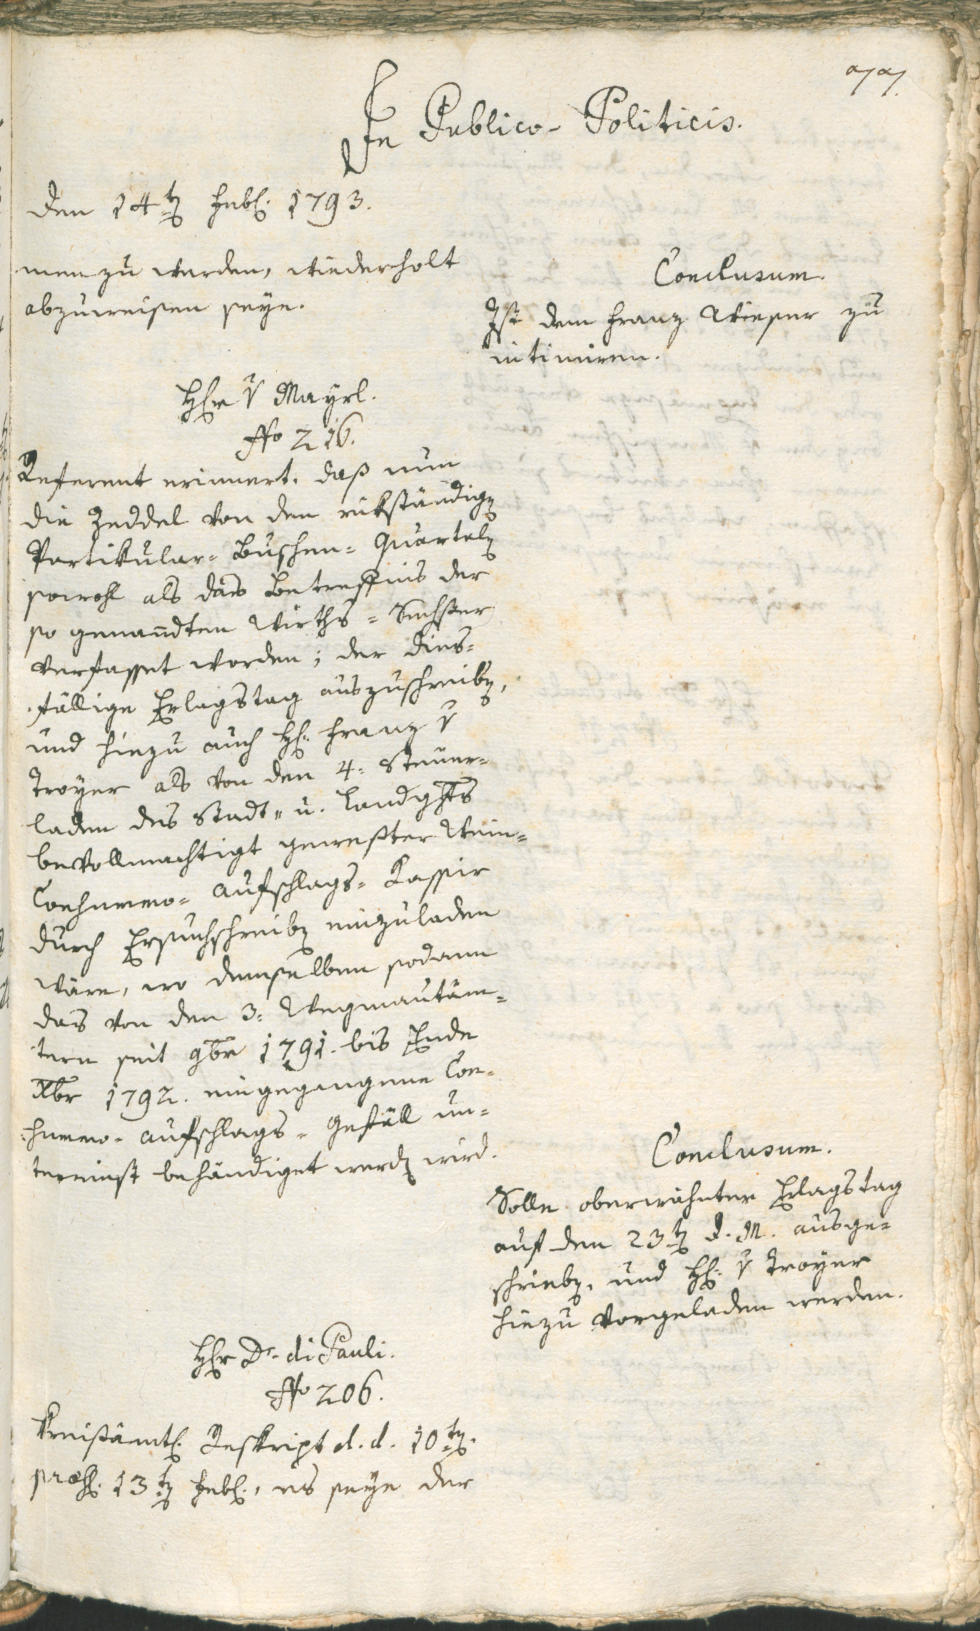 77.
In Publico-Politicis.
den 14t Febl: 1793.
men zu werden, wiederholt
abzuweisen seye.
Conclusum.
Ist dem Franz Wieser zu
intimiren.
Hhr v Mayrl.
No 216.
Referent erinnert, daß nun
die Zeddel von den rükständig
Partikular-Buschen-Quartal
sowohl als das Betreffnis der
so genandten Wirths-Sechster
verfasset worden; der dies-
fällige Erlagstag auszuschreib,
und hiezu auch Hh: Franz v
Troyer als von den 4: Steuer-
laden des Stadt- u. Landghts
bevollmachtigt gewester Wein-
Consummo-aufschlags-Kassir
durch Ersuchschreib einzuladen
wäre, wo demselben sodann
das von den 3: Wegmautäm-
tern seit 9br 1791. bis Ende
Xbr 1792. eingegangene Con-
summo-aufschlags-Gefäll un-
tereinst behändiget werd wird.
Conclusum.
Solle oberwähnter Erlagstag
auf den 23t d. M. ausge-
schrieb, und Hh: v Troyer
hiezu vorgeladen werden.
Hhr Dr. di Pauli.
No 206.
Kreisämtl: Reskript d. d. 10t
præs: 13t Febl:, es seye der